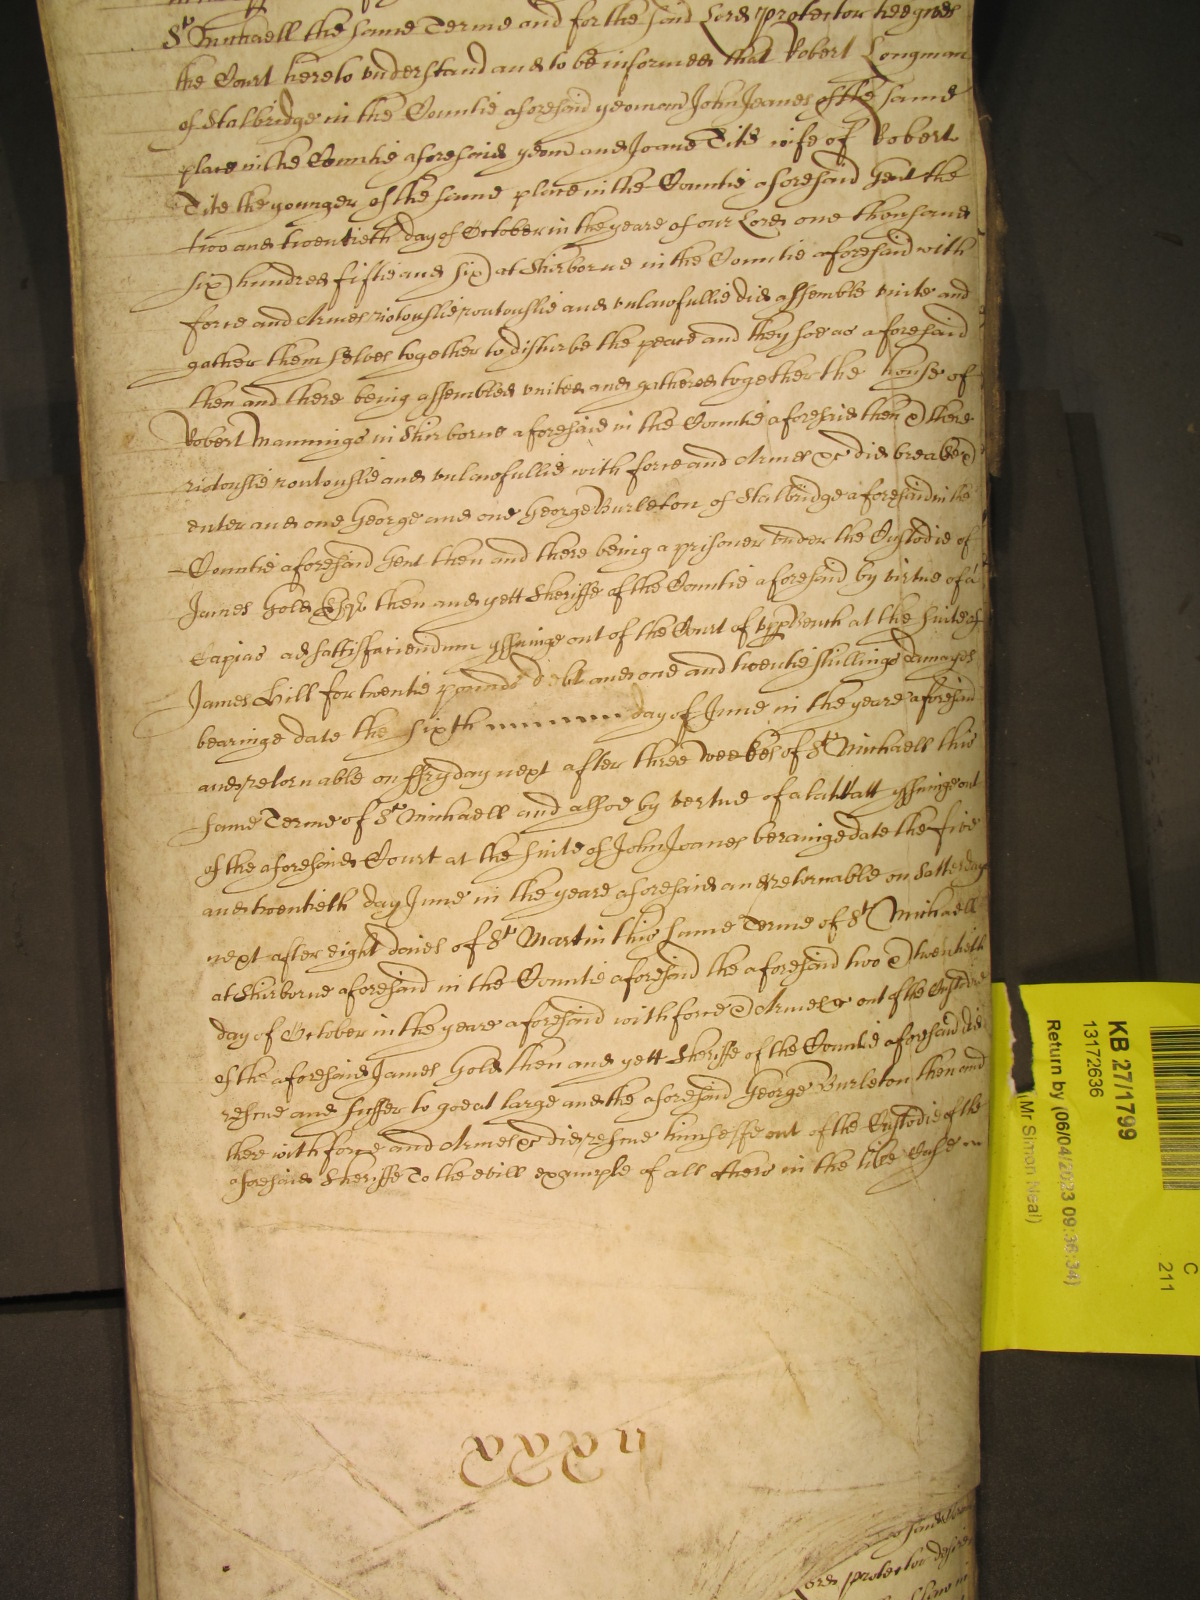 St Michaell the same Terme and for the said Lord Protector hee gives
the Court here to understand and to be informed that Robert Longman
of Stalbridge in the Countie aforesaid yeoman John Jeanes of the same
place in the Countie aforesaid yeom and Joane Tite wife of Robert
Tite the younger of the same place in the Countie aforesaid Gent the
two and twentieth day of October in the yeare of our Lord one thousand
six hundred fiftie and six at Shirborne in the Countie aforesaid with
force and Armes riotouslie routouslie and unlawfullie did assemble unite and
gather themselves together to disturbe the peace and they soe as aforesaid
then and there being assembled united and gathered together the house of
Robert Mannings in Shirborne aforesaid in the Countie aforesaid then & there
riotouslie routouslie and unlawfullie with force and Armes &c did breake &
enter and one George and one George Burleton of Stalbridge aforesaid in the
Countie aforesaid Gent then and there being a prisoner under the Custodie of
James Gold Esqr then and yett Sheriffe of the Countie aforesaid by virtue of a
Capias ad sattisfaciendum yssuinge out of the Court of uppBench at the suite of
James Hill for twentie pounds debt and one and twentie shillings damages
bearinge date the sixth day of June in the yeare aforesaid
and retornable on ffryday next after three weekes of St Michaell this
same Terme of St Michaell and alsoe by vertue of a latitatt yssuinge out
of the aforesaid Court at the suite of John Jeanes bearinge date the five
and twentieth day June in the yeare aforesaid and retornable on Satterday
next after eight daies of St Martin this same Terme of St Michaell
at Shirborne aforesaid in the Countie aforesaid the aforesaid two & twentieth
day of October in the yeare aforesaid with force & Armes &c out of the Custodie
of the aforesaid James Gold then and yett Sheriffe of the Countie aforesaid did
rescue and suffer to goe at large and the aforesaid George Burleton then and
there with force and Armes &c did rescue himselfe out of the Custodie of the
aforesaid Sheriffe To the evill example of all others in the like Case
KB 27/1799
13172636
Return by (06/04/2023 09:36:34)
(Mr Simon Neal)
C
211
Lord protector desire